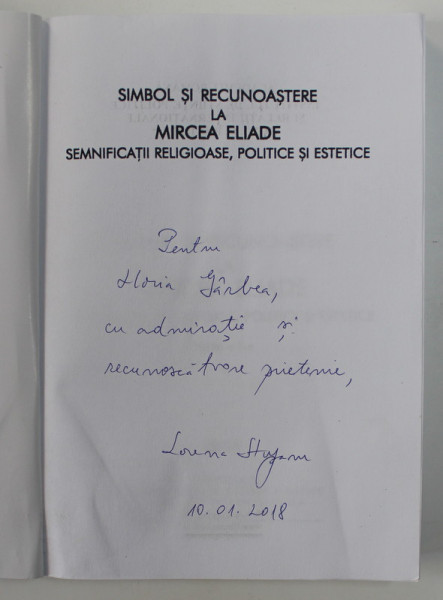 SIMBOL ȘI RECUNOAȘTERE
LA
MIRCEA ELIADE
SEMNIFICAȚII RELIGIOASE, POLITICE ȘI ESTETICE
Pentru
Horia Gârbea,
cu admirație și
recunoscătoare prietenie,
Lorena Stuparu
10.01.2018